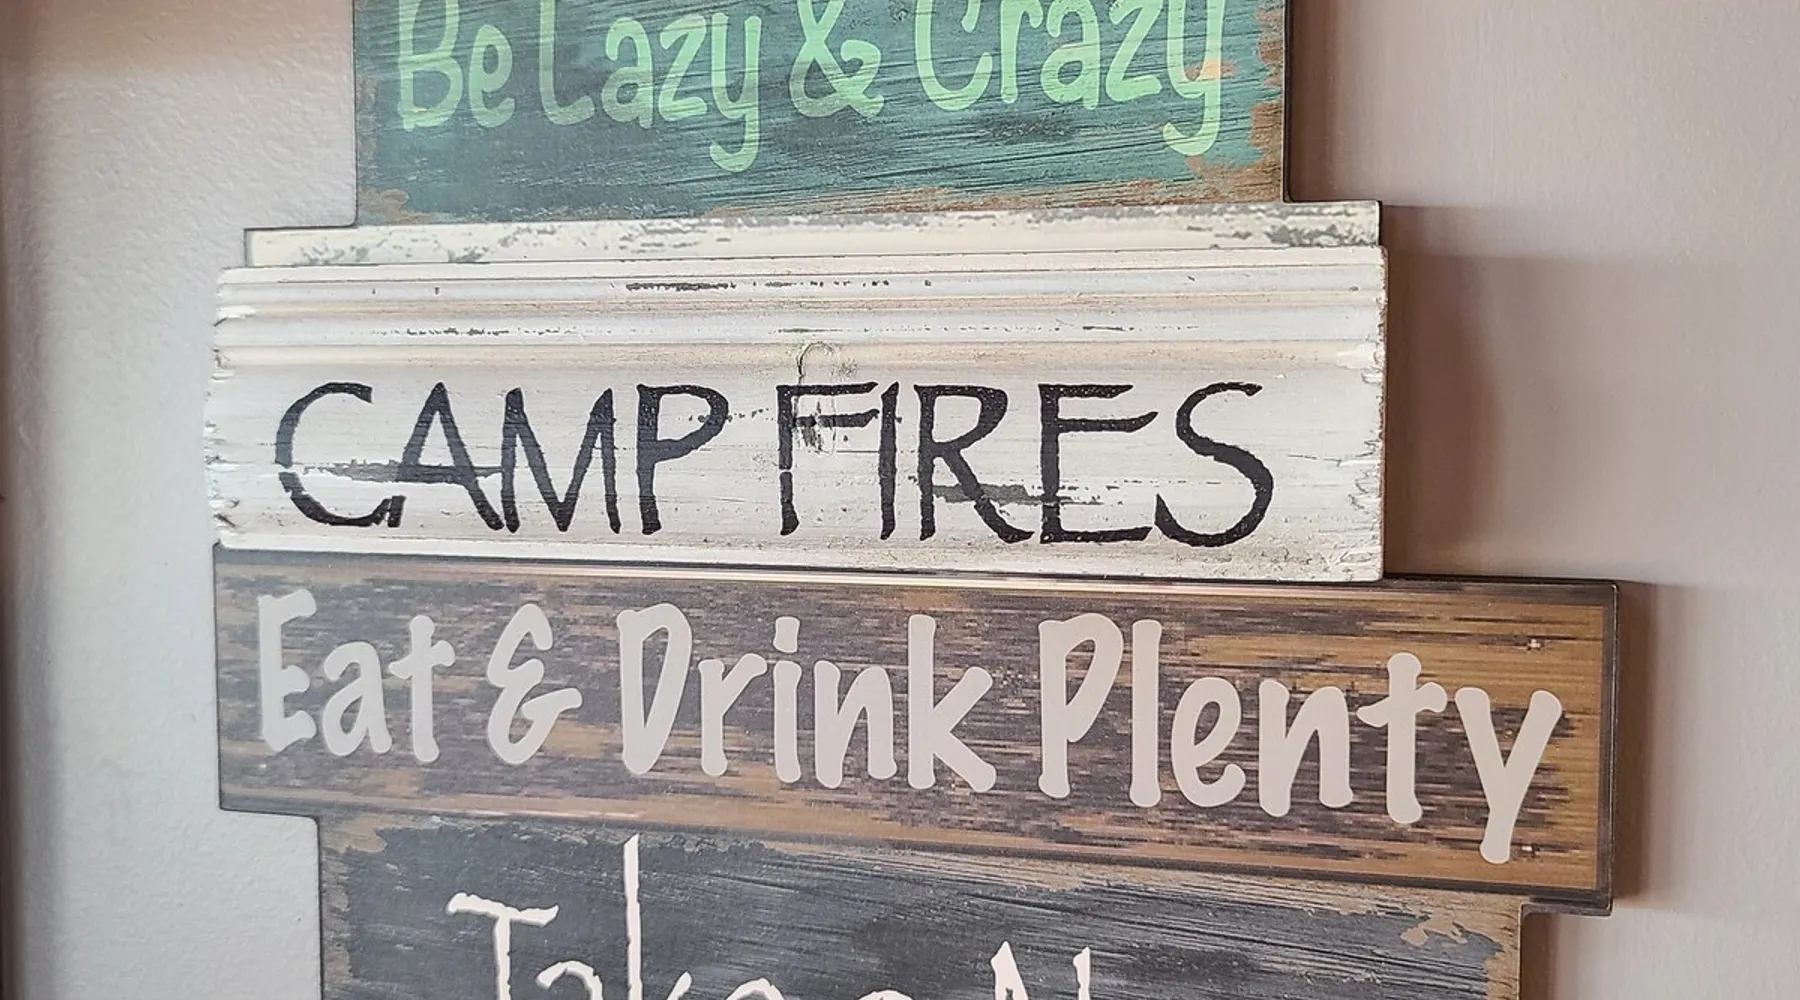 Be Lazy & Crazy
CAMP FIRES
Eat & Drink Plenty
Take a